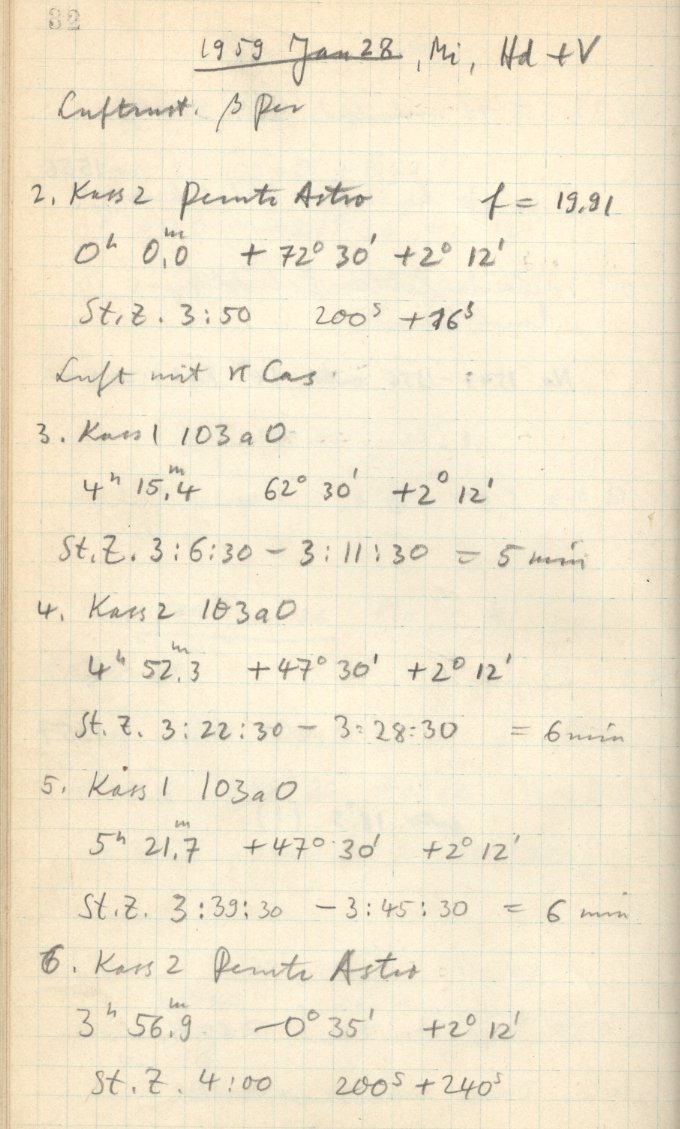 32
1959 Jan 28, Mi, Hd + V
β Per
2. Kass 2 Perutz Astro f = 19,91
0ʰ 0,0ᵐ + 72° 30' + 2° 12'
St.Z. 3:50 200ˢ + 76ˢ
Luft mit κ Cas.
3. Kass 1 103aO
4ʰ 15,4ᵐ 62° 30' + 2° 12'
St.Z. 3:6:30 – 3:11:30 = 5 min
4. Kass 2 103aO
4ʰ 52,3ᵐ + 47° 30' + 2° 12'
St.Z. 3:22:30 – 3:28:30 = 6 min
5. Kass 1 103aO
5ʰ 21,7ᵐ + 47° 30' + 2° 12'
St.Z. 3:39:30 – 3:45:30 = 6 min
6. Kass 2 Perutz Astro
3ʰ 56,9ᵐ – 0° 35' + 2° 12'
St.Z. 4:00 200ˢ + 240ˢ